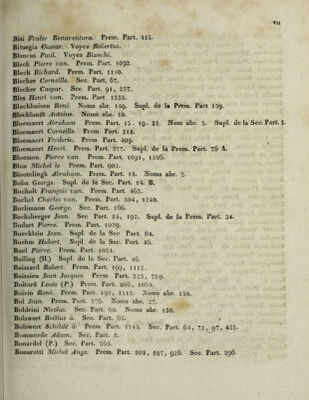 VII
Bisi Fratër Bonaventura. Prem. Part. 415.
Biturgia Caesar. Voyez Robertus.
Blancus Paul. Voyez Bianchi.
Bleck Pierre van. Prem. Part. 1092.
Bleck Richard. Prem. Part. 1110.
Blecker Corneille. Sec. Part. 67.
Blecker Caspar. Sec. Part. 91, 257.
Bles Henri van. Prem. Part. 1333.
Blockhuisen René. Noms abr. 109. Supl. de la Prem. Part 159.
Blocklandt Antoine. Noms abr. 10.
Bloemaert Abraham. Prem. Part. 15. 19. 25. Nom abr. 3. Supl. de la Sec. Part.
Bloemaert Corneille. Prem. Part. 218.
Bloemaert Fréderic. Prem Part. 409.
Bloemaert Henri. Prem. Part. Supl. de la Prem. Part. 76 A.
Bloemen Pierre van. Prem. Part. 1091, 1266.
Blon Michel le. Prem. Part. 902.
Blootelingh Abraham. Prem. Part. 14. Noms abr. 2.
Boba George. Supl. de la Sec. Part. 14. B.
Bocholt François van. Prem. Part. 465.
Bockel Charles van. Prem. Part. 304, 1240.
Bockmann George. Sec. Part. 166.
Bocksberger Jean. Sec Part. 25, 192. Supl. de la Prem. Part. 24.
Bodart Pierre. Prem. Part. 1029.
Boecklein Jean. Supl. de la Sec Part. 64.
Boehm Hubert. Supl. de la Sec. Part. 46.
Boel Pierre. Prem. Part. 1051.
Boiling (H.) Supl. de la Sec. Part. 46.
Boissard Robert. Prem. Part. 199, 1112.
Boissieu Jean Jacques. Prem. Part. 325, 759.
Boitard Louis (P.) Prem. Part. 866, 1064.
Boivin René. Prem. Part. 191, 1112. Noms abr. 150.
Bol Jean. Prem. Part. 376. Noms abr. 27.
Boldrini Nicolas. Sec. Part. 60. Noms abr. 130.
Bolswert Boëtius à. Sec. Part. 65.
Bolswert Schelde à. Prem. Part. 1145. Sec. Part. 64, 71, 97, 452.
Bommerde Adam. Sec. Part. 8.
Bonardel (P.) Sec. Part. 361.
Bonarotti Michel Ange. Prem. Part. 808, 887, 926. Sec. Part. 296.